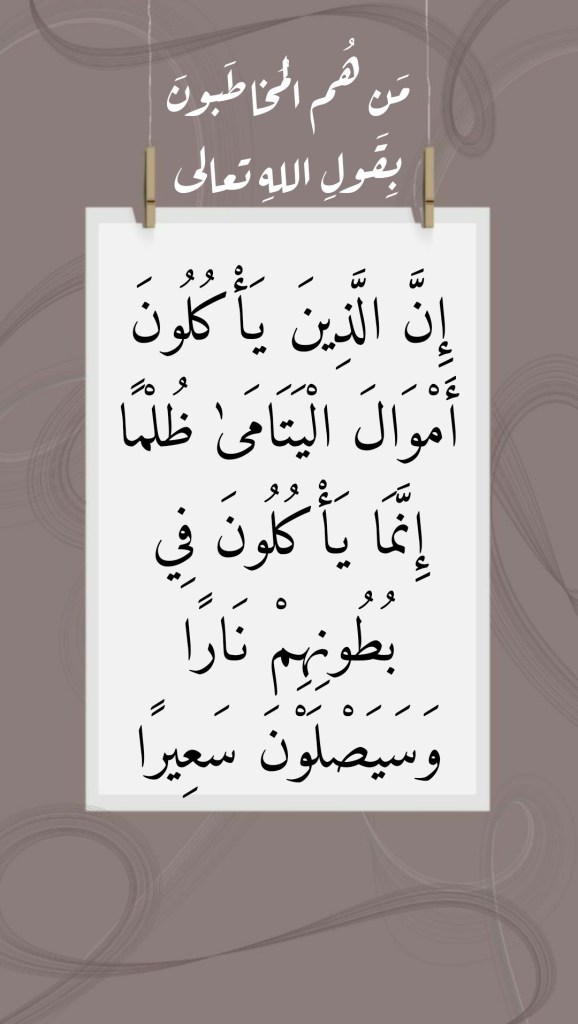 مَن هُم الْمُخاطَبونَ
بِقَولِ اللهِ تعالى
إِنَّ الَّذِينَ يَأْكُلُونَ
أَمْوَالَ الْيَتَامَىٰ ظُلْمًا
إِنَّمَا يَأْكُلُونَ فِي
بُطُونِهِمْ نَارًا
وَسَيَصْلَوْنَ سَعِيرًا